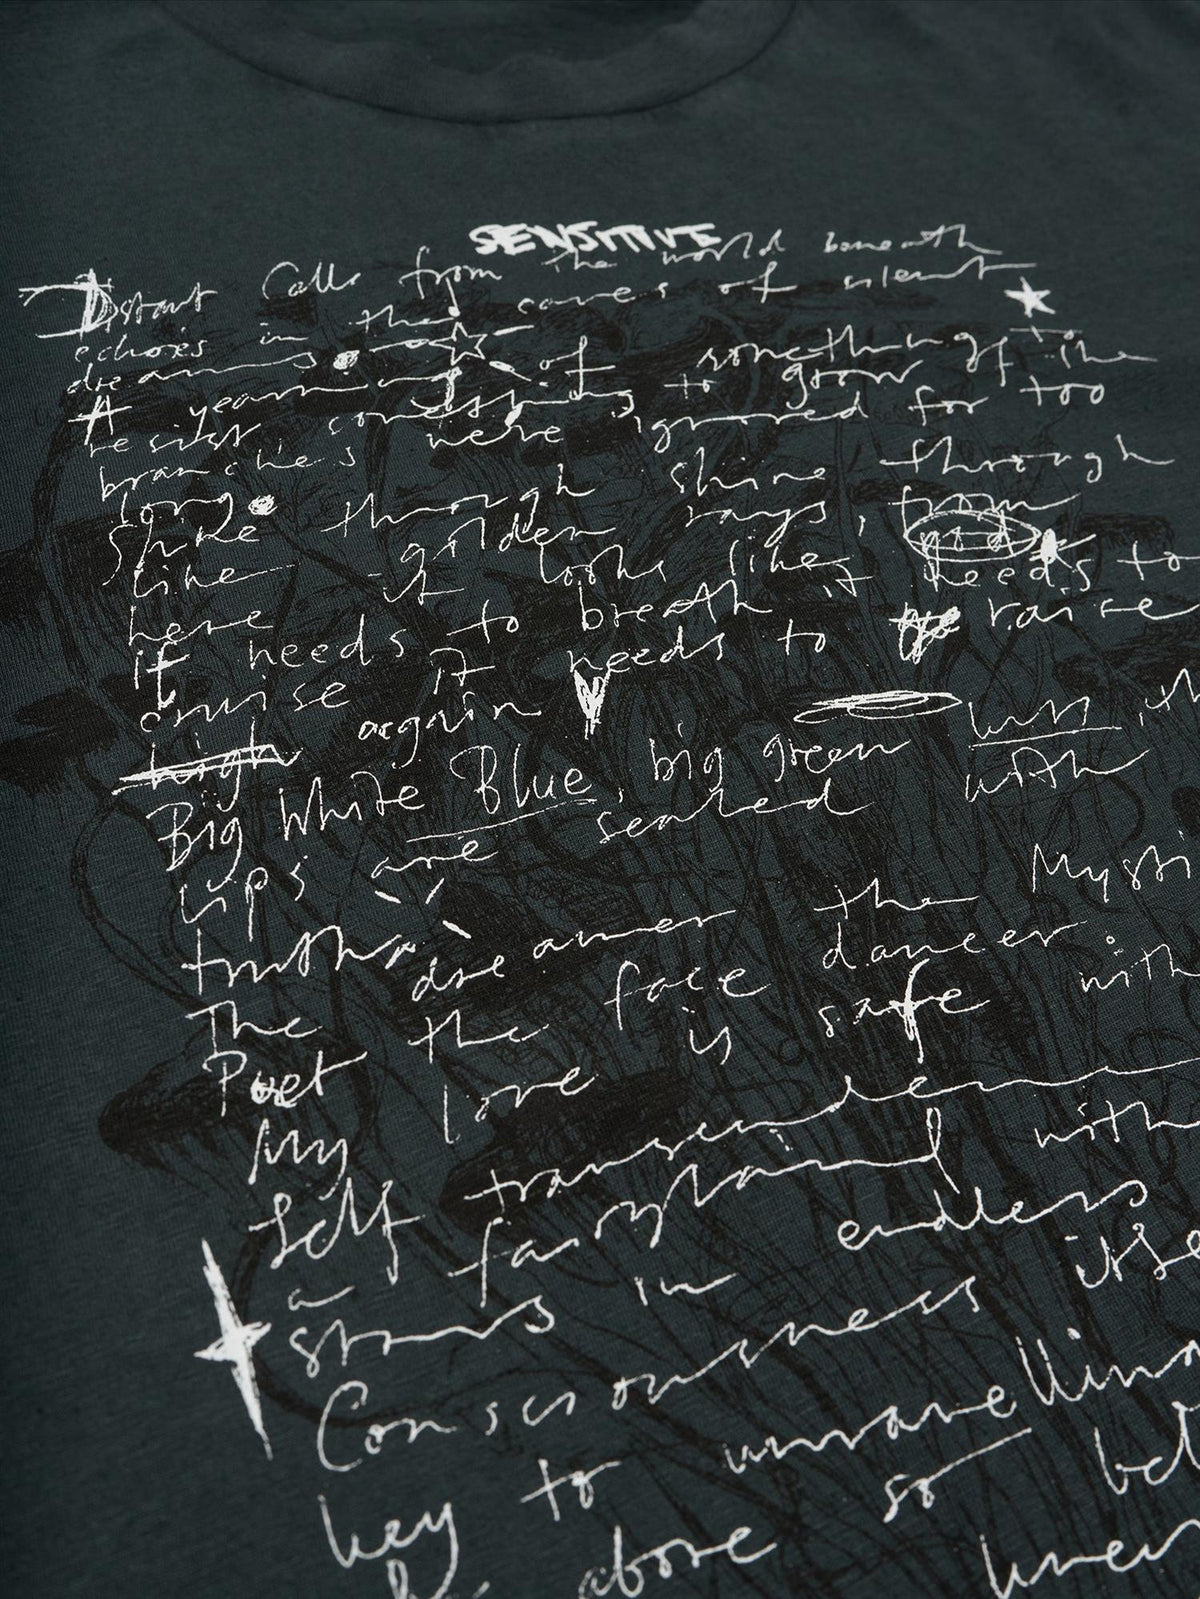 SENSITIVE
Distant Calls from the world beneath
echoes in the caves of silent
dreams
A yearning of something, the
resist something to grow to
branches were ignored for too
long
Strike through shine through
like golden rays, from
here it looks like it needs to
it needs to breath
cruise it needs to raise
high again
Big White Blue, big green
lips are sealed with
truth
The dreamer the Mysti
Poet the face dancer
My love is safe with
Self transcendence
a fairyland with
stars in endless
Consciousness itse
key to unravelling
above so bel